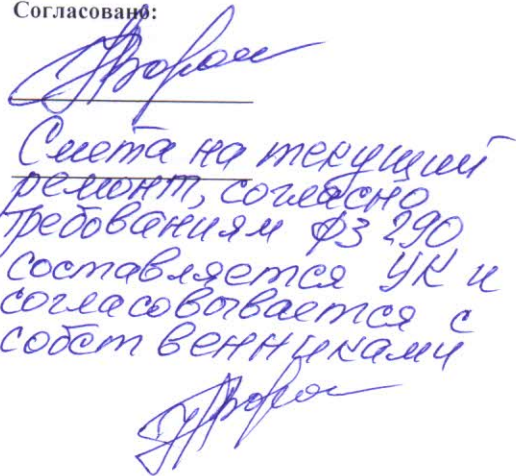 Согласовано:
Смета на текущий
ремонт, согласно
требованиям ФЗ 290
составляется УК и
согласовывается с
собственниками